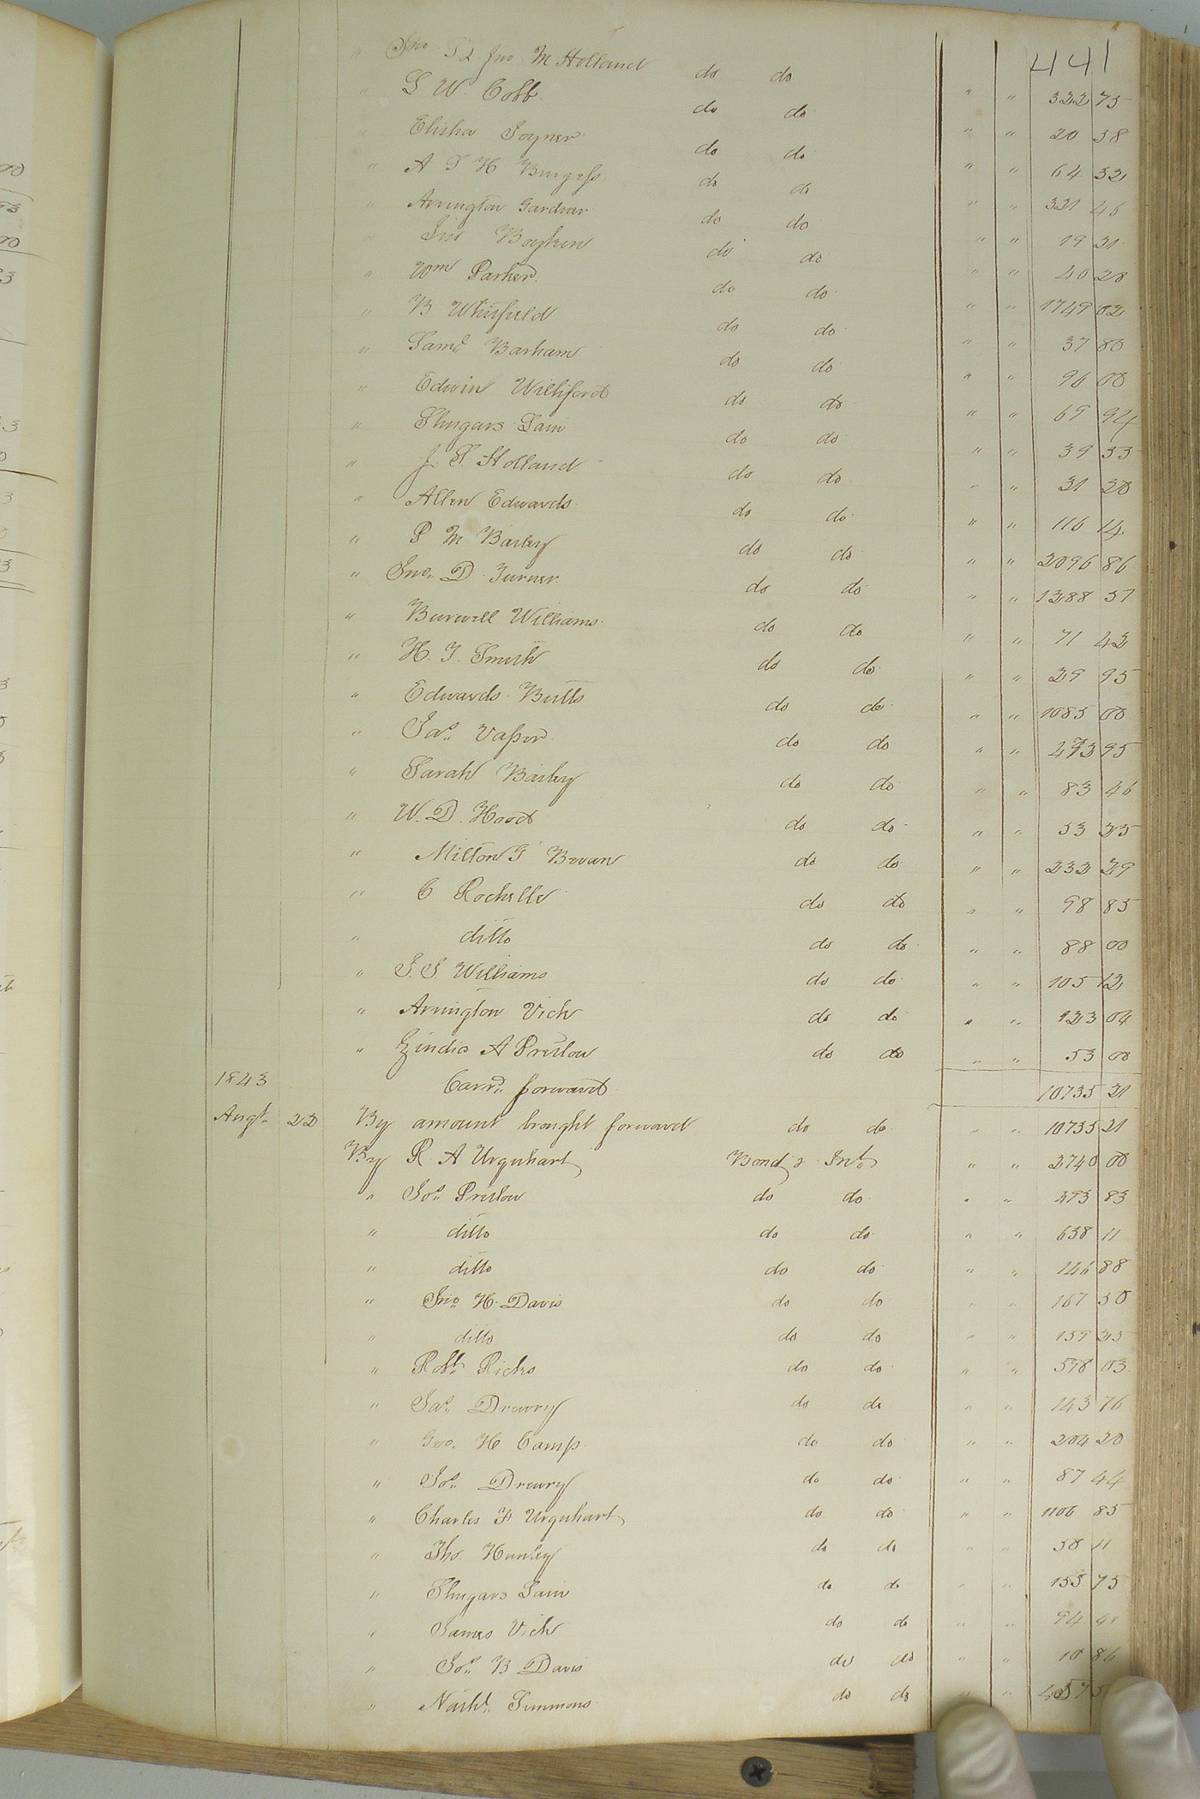 441
" Jno T & Jno M Holland do do " " 322 75
" G W Cobb do do " " 20 58
" Elisha Joyner do do " " 64 32
" A T H Burgess do do " " 321 46
" Arrington Gardner do do " " 19 31
Jno Boykin do do " " 40 28
" Wm Parker do do " " 1749 02
" B Whitfield do do " " 37 80
" Saml Barham do do " " 96 00
" Edwin Williford do do " " 69 94
" Thugars Sam do do " " 39 53
" J. T. Holland do do " " 31 20
" Allen Edwards do do " " 116 14
" P M Bailey do do " " 2096 86
" Jno. D. Turner do do " " 1288 57
" Burwell Williams do do " " 71 42
" H. T. Smith do do " " 29 95
" Edwards Butts do do " " 1085 00
" Jas. Vasser do do " " 273 95
" Sarah Bailey do do " " 83 46
" W. D. Hood do do " " 53 25
" Milton G Bevan do do " " 232 29
" C Rochelle do do " " 98 85
" ditto do do " " 88 00
" J. S Williams do do " " 105 12
" Arrington Vick do do " " 123 04
" A Preslow do do " " 53 00
Carrd. forward 10735 21
1843
Augt. 22 By amount brought forward do do " " 10735 21
By R A Urquhart Bond & Int. " " 2740 00
" Jos. Preslow do do " " 293 83
" ditto do do " " 638 11
" ditto do do " " 146 88
" Jno H. Davis do do " " 167 50
" ditto do do " " 159 25
" Robt. Ricks do do " " 598 03
" Jas. Drewry do do " " 143 76
" Geo. H Camp do do " " 204 20
" Jos. Drewry do do " " 87 44
" Charles F Urquhart do do " " 1106 85
" Tho. Hunley do do " " 58 11
" Thugars Sam do do " " 153 75
" James Vick do do " " 94
" Jos. B Davis do do " " 10 86
" Nathl. Simmons do do " "